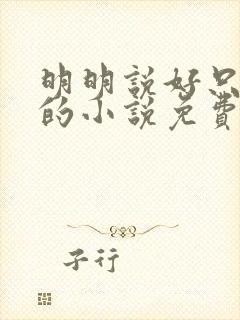 明明說好只
的小說免費
子行